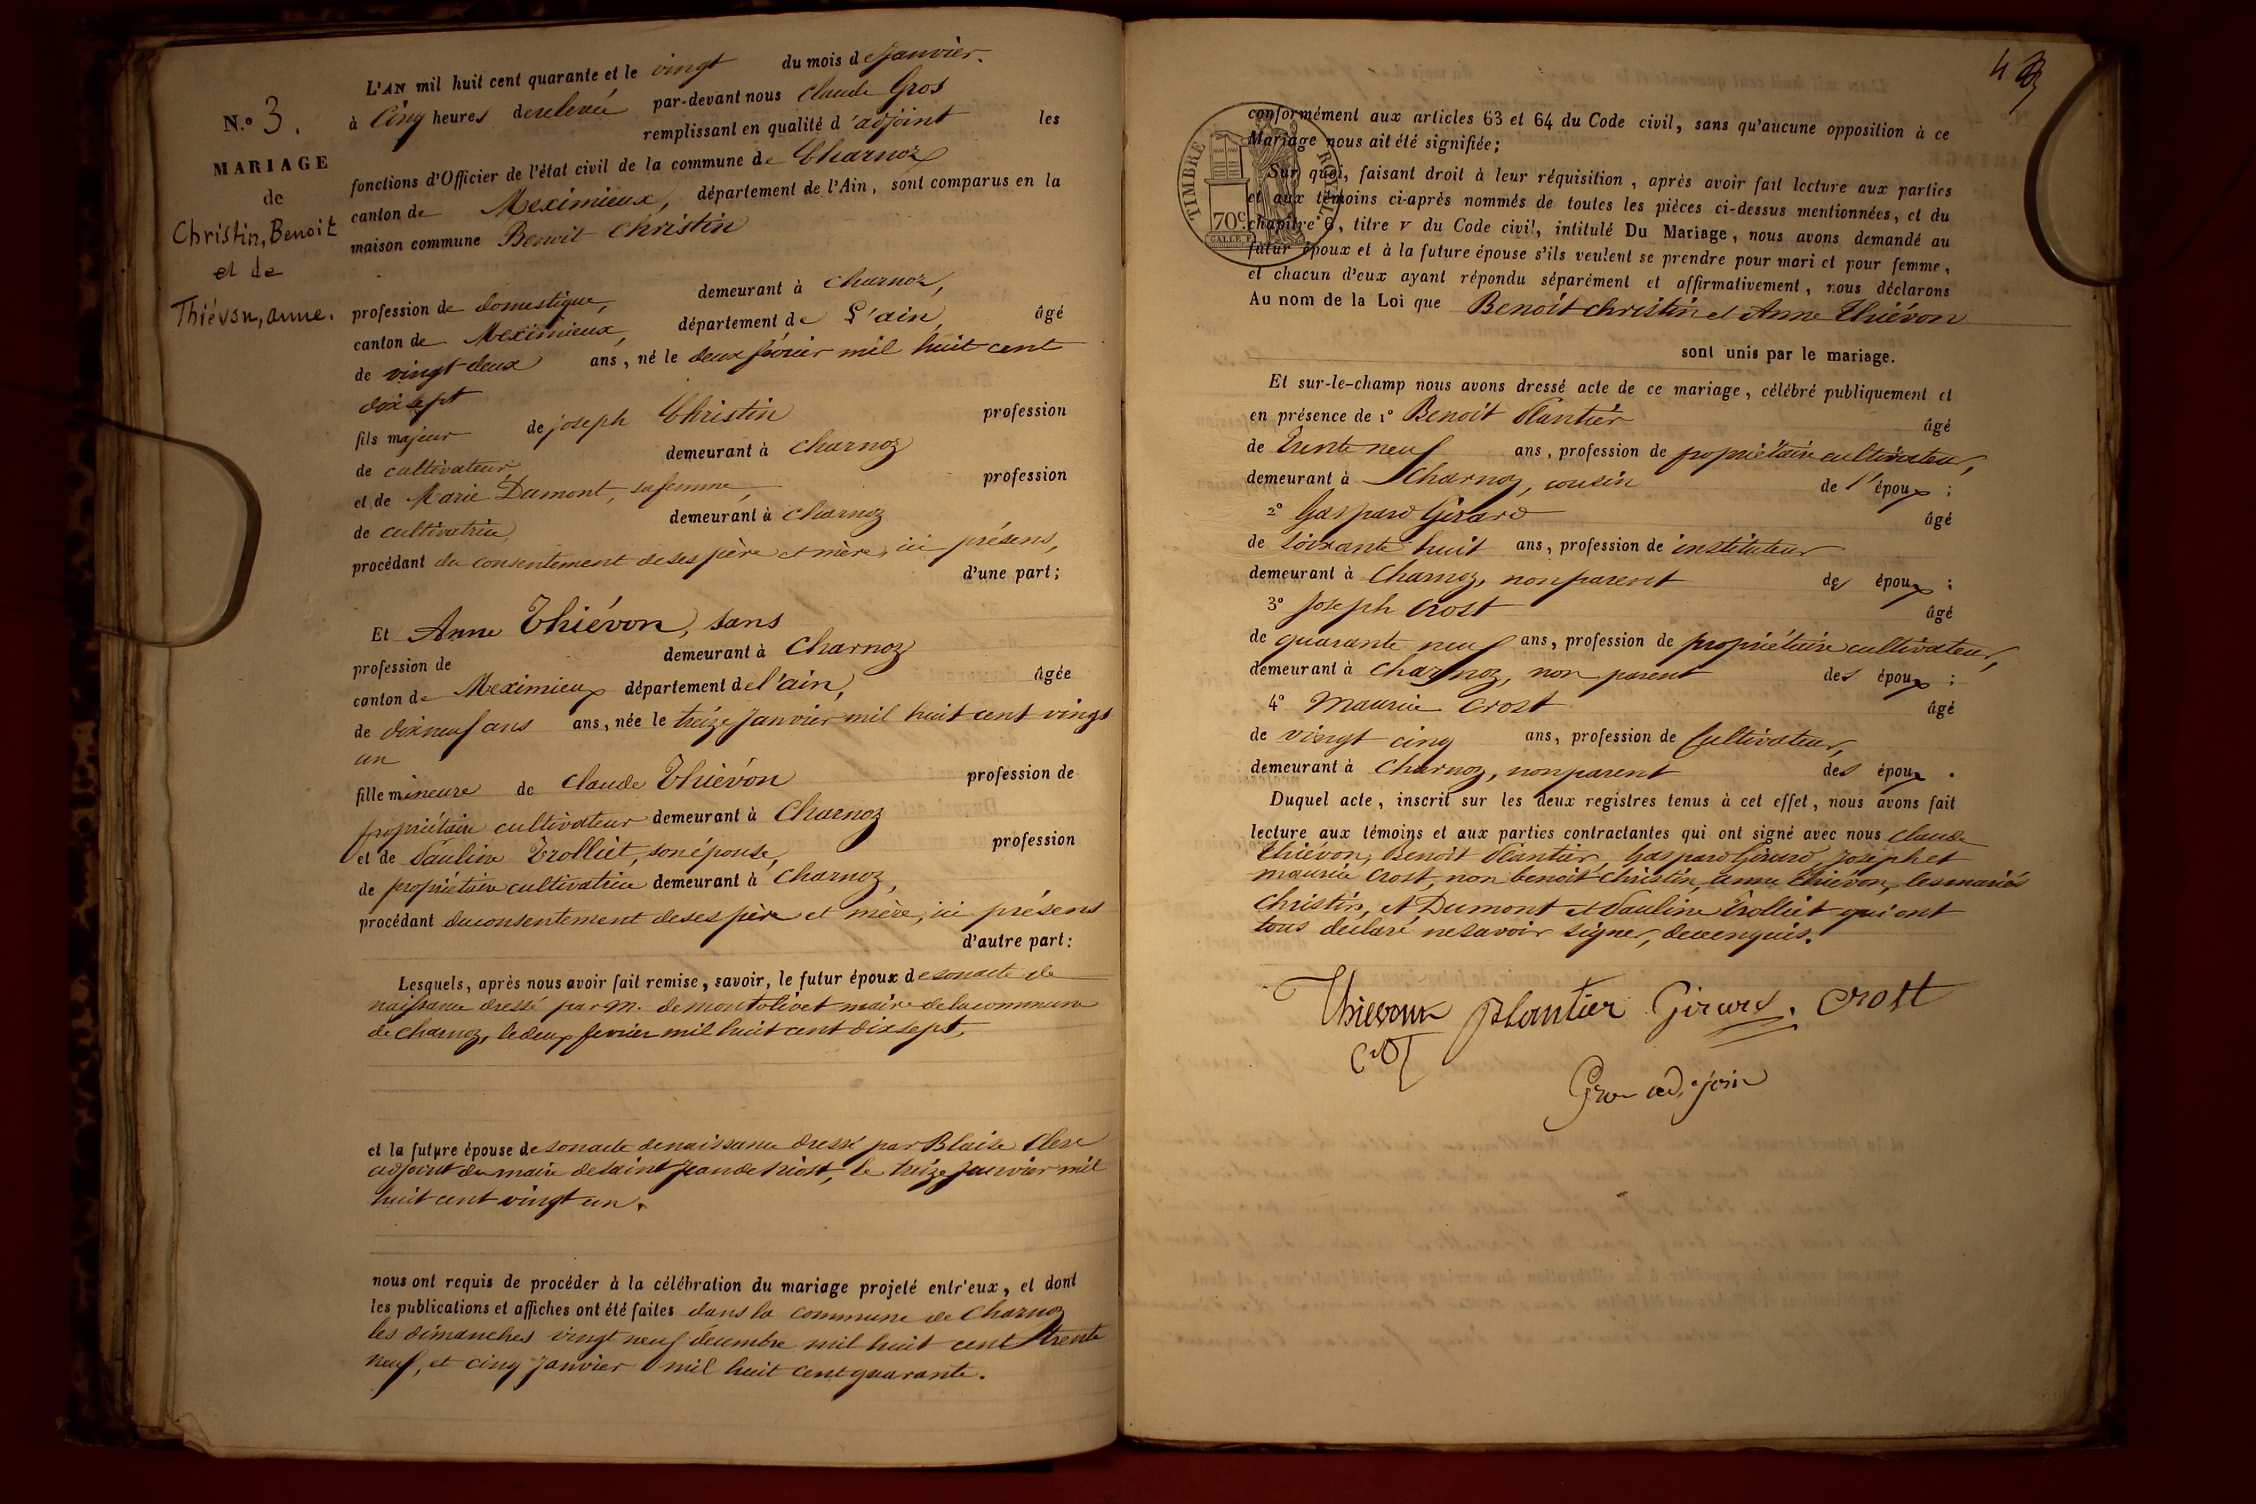 N.o 3.
MARIAGE
de
Christin, Benoit
et de
Thiévon, anne.
L'AN mil huit cent quarante et le vingt du mois de Janvier.
à Cinq heures de relevée par-devant nous Claude Gros
remplissant en qualité d'adjoint les
fonctions d'Officier de l'état civil de la commune de Charnoz
canton de Meximieux, département de l'Ain, sont comparus en la
maison commune Benoit Christin
profession de domestique, demeurant à Charnoz,
canton de Meximieux, département de L'ain, âgé
de vingt deux ans, né le deux février mil huit cent
dix sept
fils majeur de joseph Christin profession
de cultivateur, demeurant à Charnoz
et de Marie Dumont, sa femme, profession
de cultivatrice, demeurant à Charnoz
procédant du consentement de ses père et mère, ici présens,
d'une part;
Et Anne Thiévon, sans
profession de demeurant à Charnoz
canton de Meximieux département de l'ain, âgée
de dix neuf ans ans, née le treize Janvier mil huit cent vingt
un
fille mineure de Claude Thiévon profession de
propriétaire cultivateur demeurant à Charnoz
et de Pauline Trolliet, son épouse, profession
de propriétaire cultivatrice demeurant à Charnoz,
procédant du consentement de ses père et mère, ici présens
d'autre part:
Lesquels, après nous avoir fait remise, savoir, le futur époux de son acte de
naissance dressé par M. de montolivet maire de la commune
de Charnoz, le deux fevrier mil huit cent dix sept,
et la future épouse de son acte de naissance dressé par Blaise Clere
adjoint du maire de saint Jean de Niost, le treize Janvier mil
huit cent vingt un.
nous ont requis de procéder à la célébration du mariage projeté entr'eux, et dont
les publications et affiches ont été faites dans la commune de Charnoz
les dimanches vingt neuf décembre mil huit cent trente
neuf, et cinq Janvier mil huit cent quarante.
4
TIMBRE ROYAL
70c
conformément aux articles 63 et 64 du Code civil, sans qu'aucune opposition à ce
Mariage nous ait été signifiée;
Sur quoi, faisant droit à leur réquisition, après avoir fait lecture aux parties
et aux témoins ci-après nommés de toutes les pièces ci-dessus mentionnées, et du
chapitre 6, titre v du Code civil, intitulé Du Mariage, nous avons demandé au
futur époux et à la future épouse s'ils veulent se prendre pour mari et pour femme,
et chacun d'eux ayant répondu séparément et affirmativement, nous déclarons
Au nom de la Loi que Benoit Christin et Anne Thiévon
sont unis par le mariage.
Et sur-le-champ nous avons dressé acte de ce mariage, célébré publiquement et
en présence de 1o Benoit Plantier âgé
de Trente neuf ans, profession de propriétaire cultivateur,
demeurant à Charnoz, cousin de l'époux;
2o Gaspard Girard âgé
de soixante huit ans, profession de instituteur
demeurant à Charnoz, non parent des époux;
3o Joseph Crost âgé
de quarante neuf ans, profession de propriétaire cultivateur,
demeurant à Charnoz, non parent des époux;
4o Maurice Crost âgé
de vingt cinq ans, profession de Cultivateur,
demeurant à Charnoz, non parent des époux.
Duquel acte, inscrit sur les deux registres tenus à cet effet, nous avons fait
lecture aux témoins et aux parties contractantes qui ont signé avec nous Claude
Thiévon, Benoit Plantier, Gaspard Girard, Joseph et
maurice Crost, non benoit Christin, anne Thiévon, les mariés
Christin, et Dumont et Pauline Trolliet qui ont
tous déclaré ne savoir signer, de ce enquis.
Thievon Plantier Girard. Crost
Gros adjoin